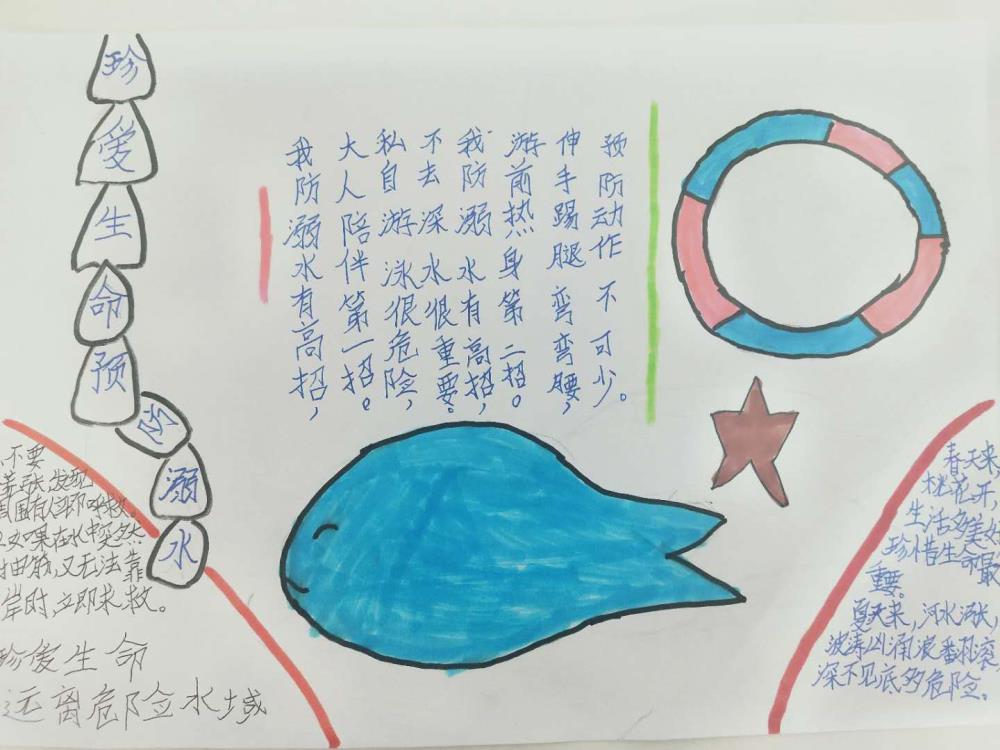 珍爱生命预防溺水
我防溺水有高招，
大人陪伴第一招。
私自游泳很危险，
不去深水很重要。
我防溺水有高招，
游前热身第二招。
伸手踢腿弯弯腰，
预防动作不可少。
不要
慌张，发现
周围有人立即呼救。
如果在水中突然
抽筋，又无法靠
岸时，立即求救。
珍爱生命
远离危险水域
春天来，
桃花开，
生活多美好
珍惜生命最
重要。
夏天来，河水涨，
波涛凶涌浪番羽滚，
深不见底多危险。